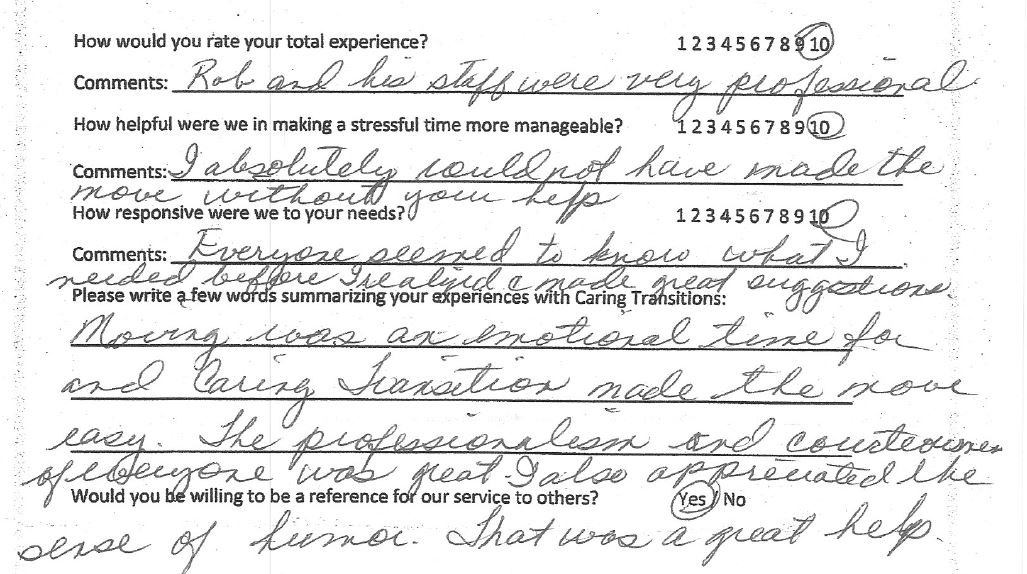 How would you rate your total experience? 1 2 3 4 5 6 7 8 9 10
Comments: Rob and his staff were very professional
How helpful were we in making a stressful time more manageable? 1 2 3 4 5 6 7 8 9 10
Comments: I absolutely could not have made the
move without your help
How responsive were we to your needs? 1 2 3 4 5 6 7 8 9 10
Comments: Everyone seemed to know what I
needed before I realized & made great suggestions.
Please write a few words summarizing your experiences with Caring Transitions:
Moving was an emotional time for
and Caring Transition made the move
easy. The professionalism and courteousness
of everyone was great I also appreciated the
Would you be willing to be a reference for our service to others? Yes / No
sense of humor. That was a great help.